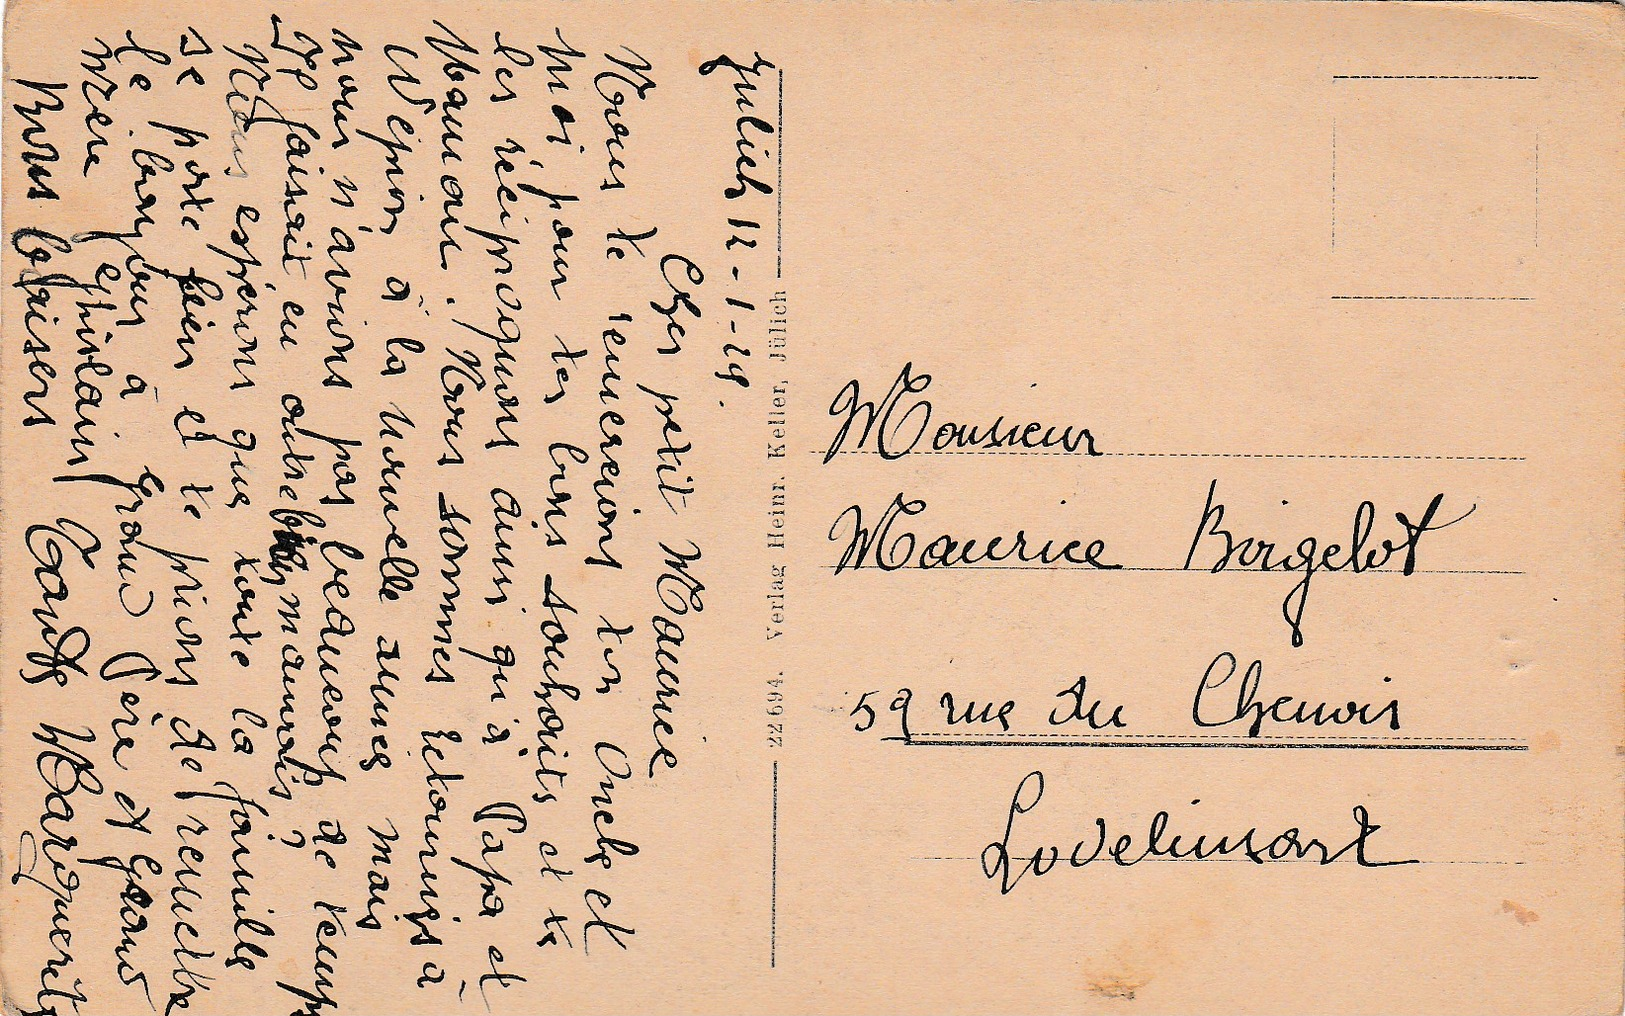 Julich 12-1-29.
Cher petit Maurice
Nous te remercions ton Oncle et
moi pour tes bons souhaits et te
les réciproquons ainsi qu'à Papa et
Maman. Nous sommes retournés à
à la nouvelle année mais
nous n'avions pas beaucoup de temps
Il faisait en outre bien mauvais ?
Nous espérons que toute la famille
se porte bien et te prions de remettre
le bonjour à Grand Père et Grand
Mère Ghislain Tante Marguerite
Bons baisers
22694. Verlag Heinr. Keller, Jülich
Monsieur
Maurice Birgelot
59 rue du Chenois
Lodelinsart